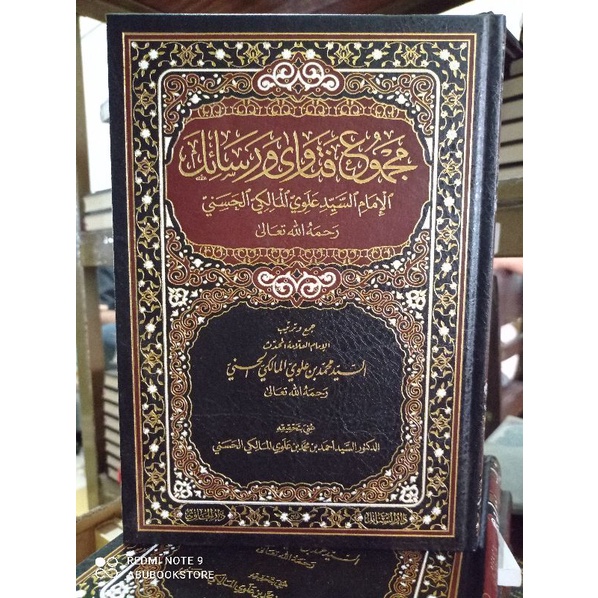 مجموع فتاوى ورسائل
الإمام السيد علوي المالكي الحسني
رحمه الله تعالى
جمع وترتيب
الإمام العلامة المحدث
السيد محمد بن علوي المالكي الحسني
رحمه الله تعالى
عني بتحقيقه
الدكتور السيد أحمد بن محمد بن علوي المالكي الحسني
السيد محمد بن علوي
رحمه الله تعالى
عني بتحقيقه
REDMI NOTE 9
ABUBOOKSTORE